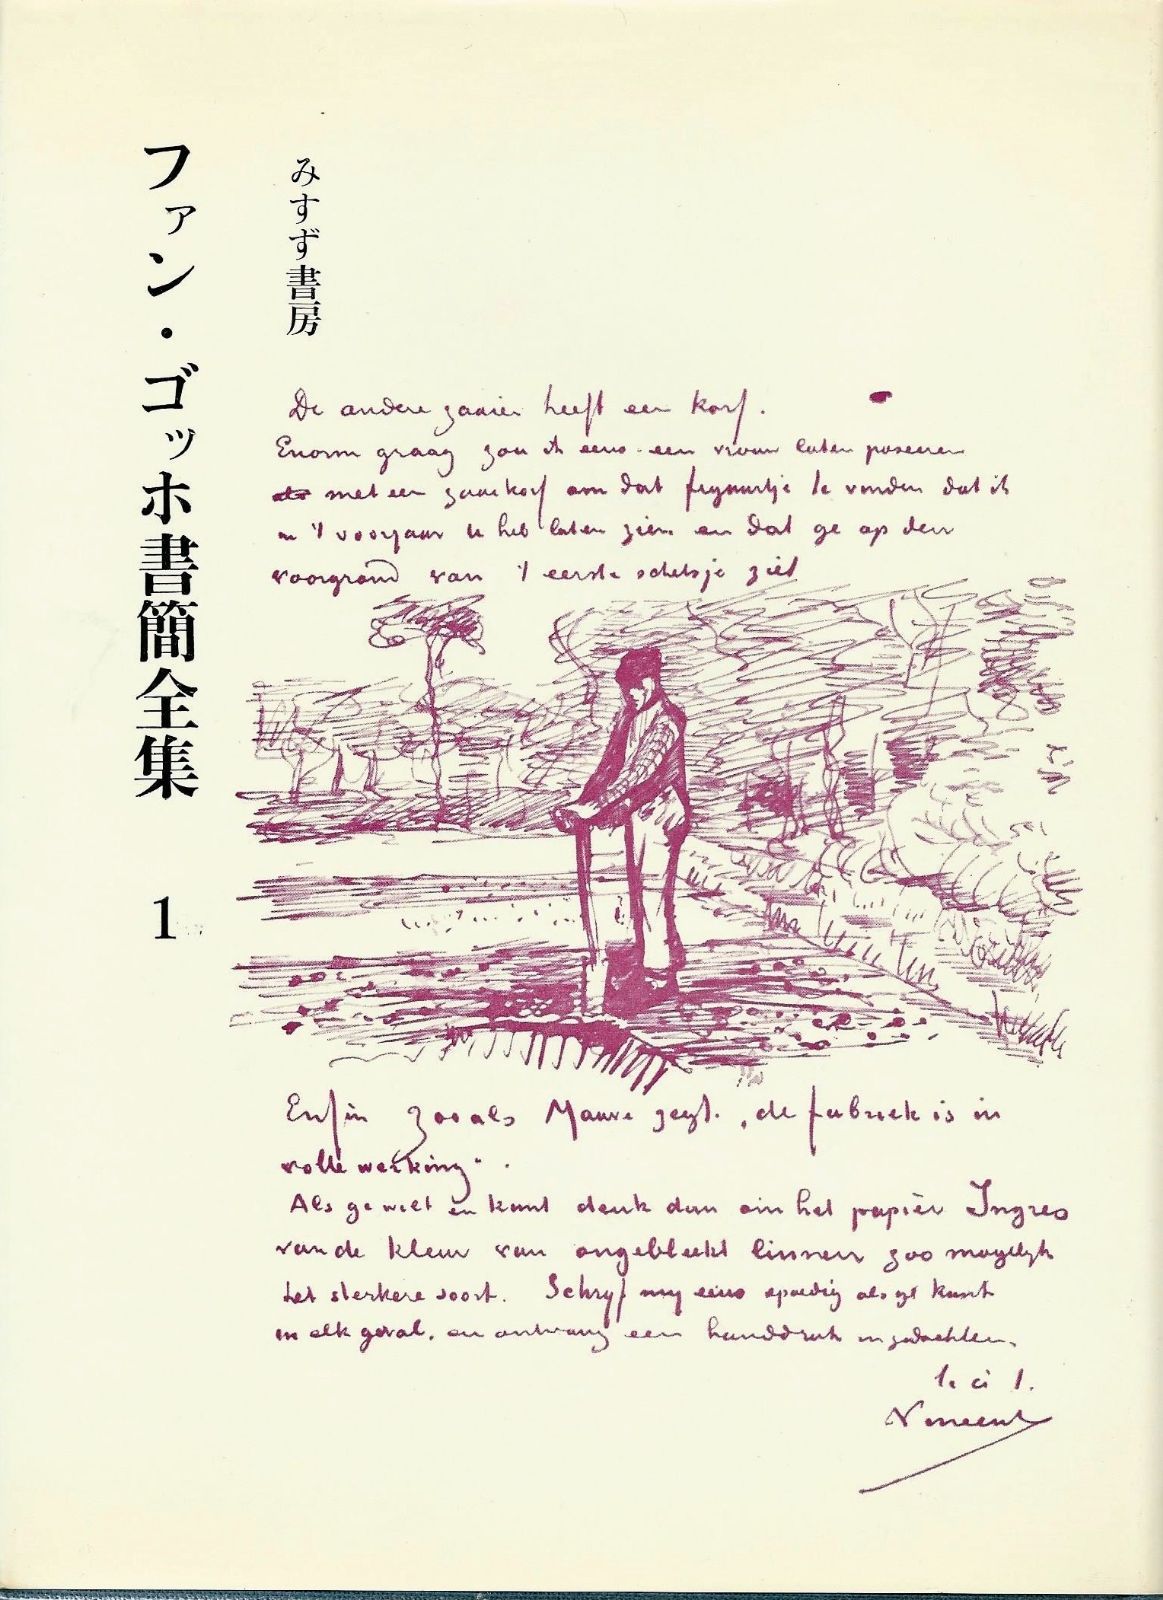 みすず書房
ファン・ゴッホ書簡全集 1
De andere zaaier heeft een korf.
Enorm graag zou ik eens een vrouw laten poseeren
met een zaaikorf om dat figuurtje te vinden dat ik
in 't voorjaar U heb laten zien en dat ge op den
voorgrond van 't eerste schetsje ziet
Enfin zooals Mauve zegt. „de fabriek is in
volle werking".
Als ge wilt en kunt denk dan om het papier Ingres
van de kleur van ongebleekt linnen zoo mogelijk
het sterkere soort. Schrijf mij eens spoedig als ge kunt
in elk geval, en ontvang een handdruk in gedachten.
t. à t.
Vincent